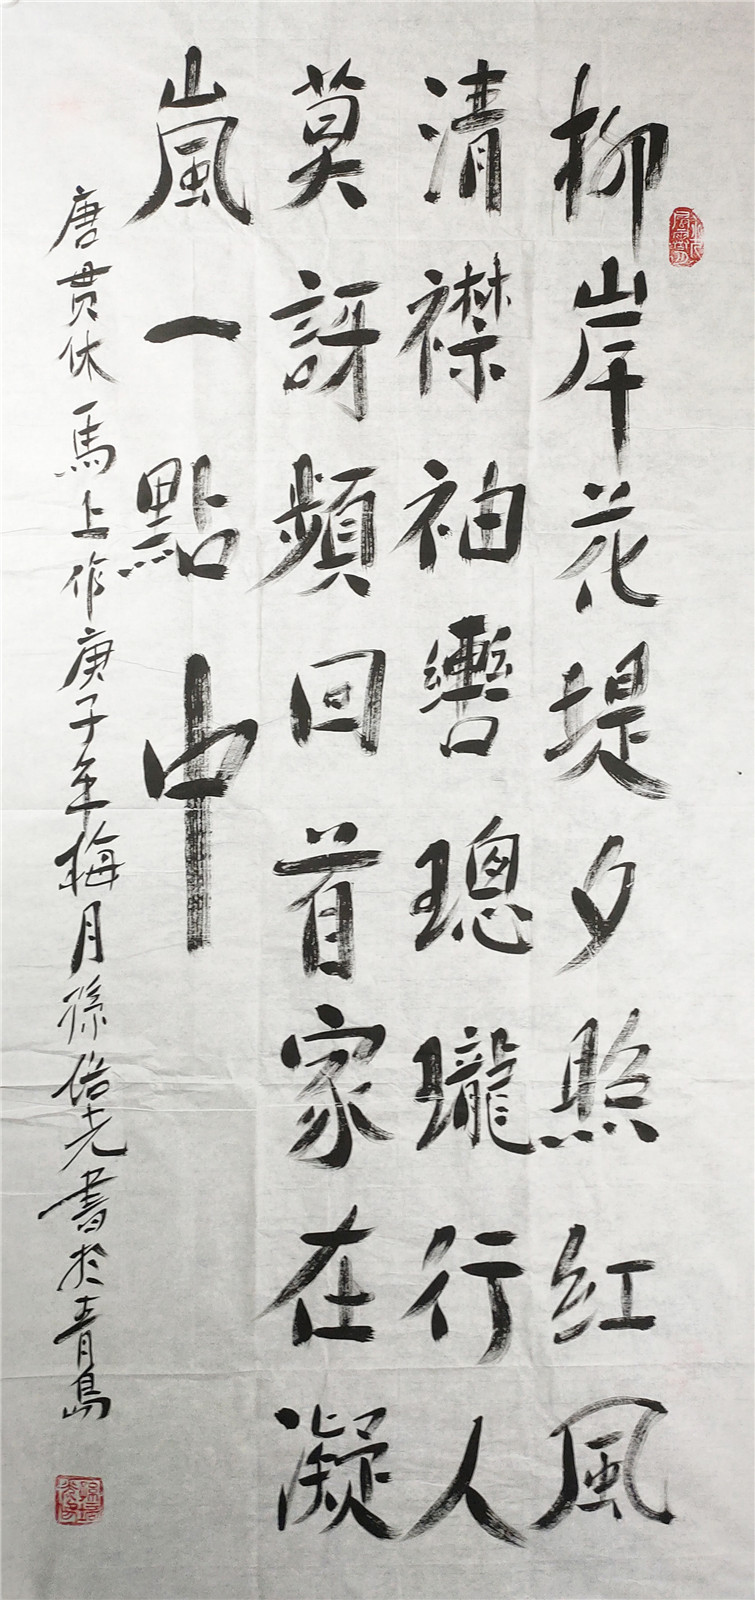 柳岸花堤夕照紅風
清襟袖轡璁瓏行人
莫訝頻回首家在凝
嵐一點中
唐貫休馬上作庚子年梅月孫倍光書於青島